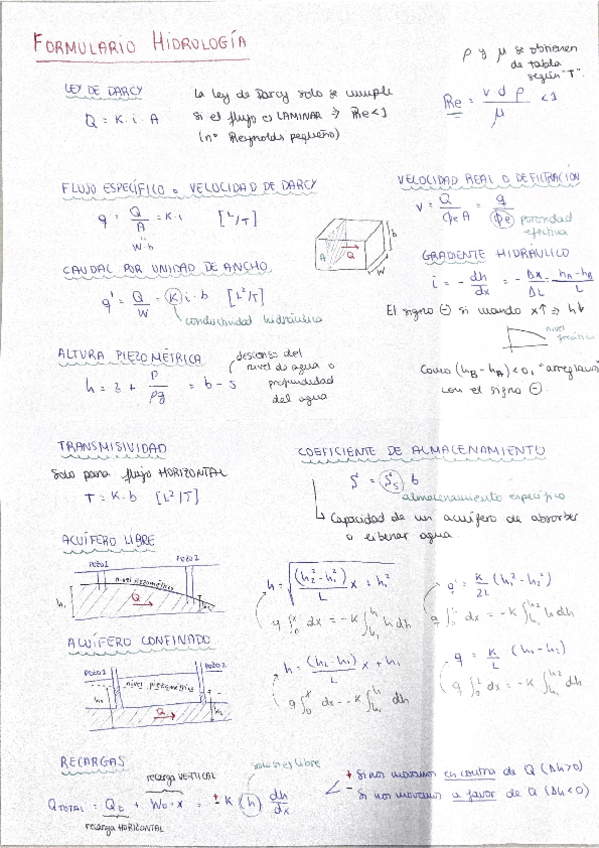 FORMULARIO HIDROLOGÍA
ρ y μ se obtienen
de tabla
según "T".
LEY DE DARCY
Q = K · i · A
La ley de Darcy solo se cumple
si el flujo es LAMINAR → Re < 1
(nº Reynolds pequeño)
Re = v d ρ / μ < 1
FLUJO ESPECÍFICO o VELOCIDAD DE DARCY
q = Q / A = K · i [L/T]
W · b
VELOCIDAD REAL O DE FILTRACIÓN
v = Q / ϕe A = q / ϕe
porosidad
efectiva
A Q b W
CAUDAL POR UNIDAD DE ANCHO
q' = Q / W = K i · b [L²/T]
conductividad hidráulica
GRADIENTE HIDRÁULICO
i = - dh / dx = - Δx / ΔL = hA - hB / L
El signo (-) si cuando x↑ ⇒ h↓
nivel
freático
Como (hB - hA) < 0, "arreglamos"
con el signo (-).
ALTURA PIEZOMÉTRICA
h = z + P / ρg = b - s
descenso del
nivel de agua o
profundidad
del agua
TRANSMISIVIDAD
Solo para flujo HORIZONTAL
T = K · b [L²/T]
COEFICIENTE DE ALMACENAMIENTO
S = Ss b
almacenamiento específico
Capacidad de un acuífero de absorber
o liberar agua.
ACUÍFERO LIBRE
POZO 1 POZO 2
nivel piezométrico
h₁ Q
h = √( (h₂² - h₁²) / L x + h₁²
q ∫₀ˣ dx = - K ∫h₁ʰ h dh
q' = K / 2L (h₁² - h₂²)
q ∫₀ᴸ dx = - K ∫h₁^h₂ h dh
ACUÍFERO CONFINADO
POZO 1 POZO 2
nivel piezométrico
h₁ Q h₂
h = (h₂ - h₁) / L x + h₁
q ∫₀ˣ dx = - K ∫h₁ʰ dh
q = K / L (h₁ - h₂)
q ∫₀ᴸ dx = - K ∫h₁^h₂ dh
RECARGAS
recarga VERTICAL
solo si es libre
Q TOTAL = Q₀ + W₀ · x = ± K (h) dh / dx
recarga HORIZONTAL
+ Si nos movemos en contra de Q (Δh>0)
- Si nos movemos a favor de Q (Δh<0)